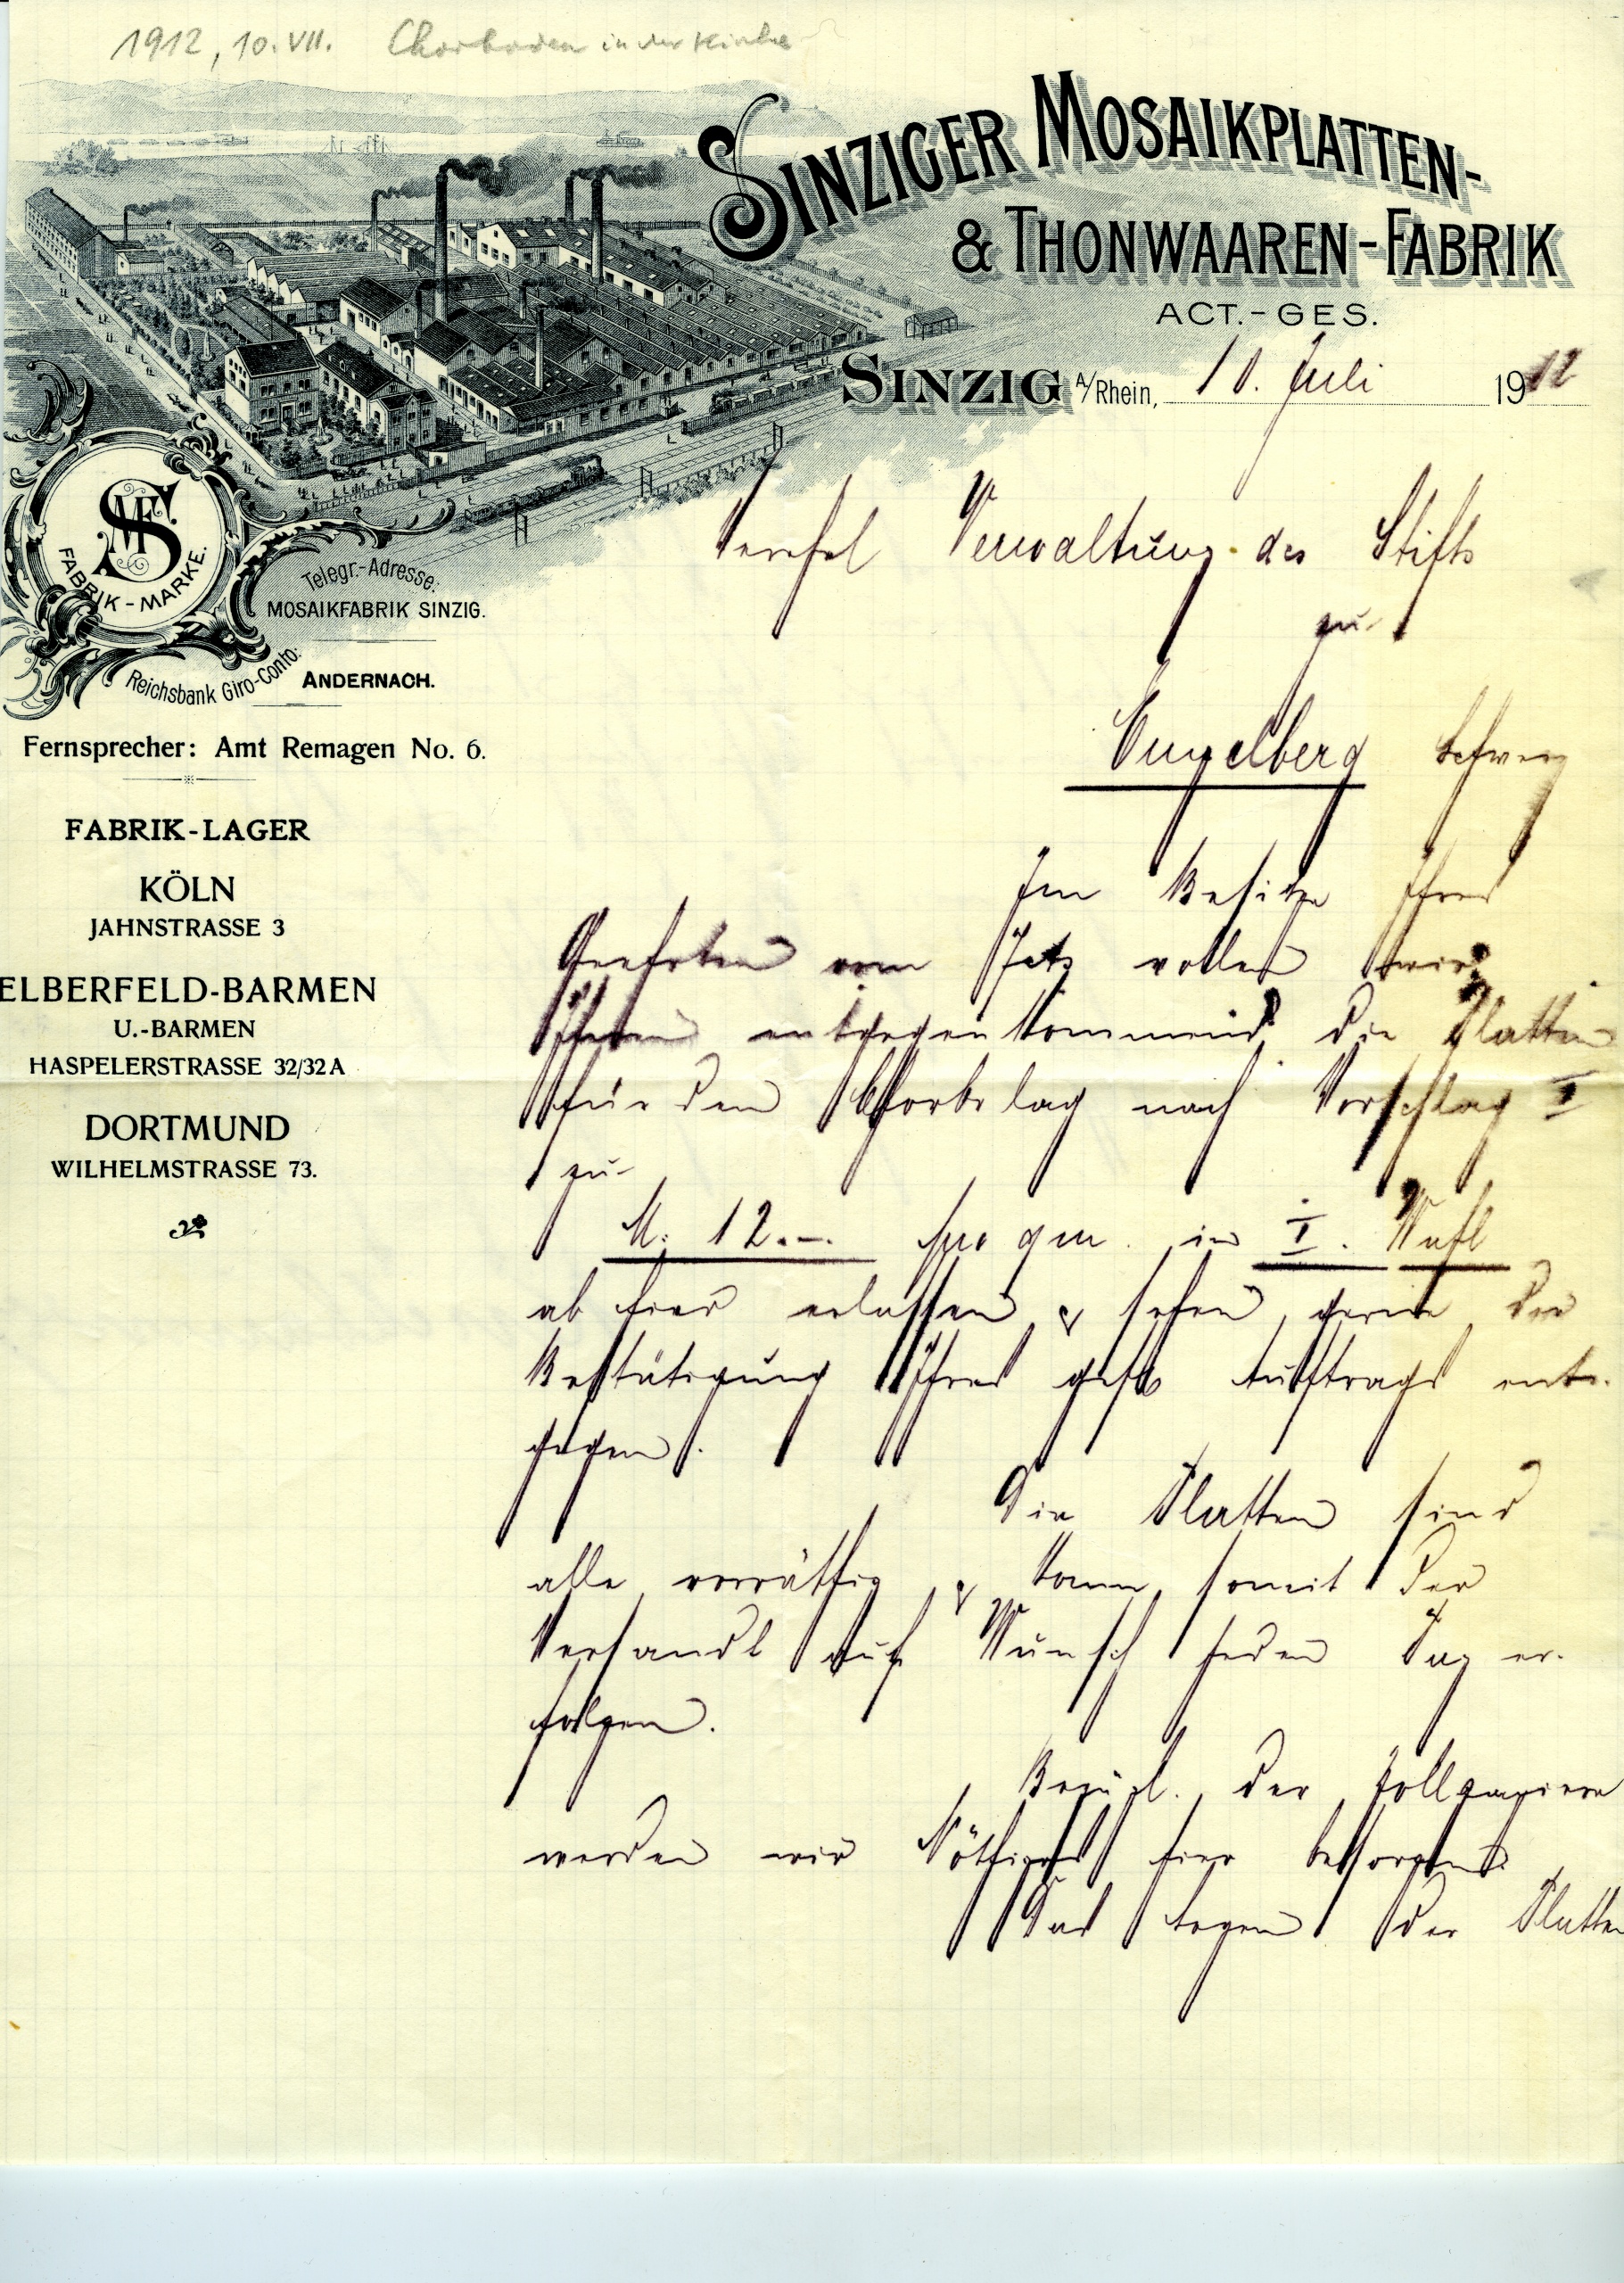 1912, 10. VII. Chorboden in der Kirche
SINZIGER MOSAIKPLATTEN-
& THONWAAREN-FABRIK
ACT.-GES.
SINZIG A/Rhein, 10. Juli 1912
SMF
FABRIK-MARKE.
Telegr.-Adresse:
MOSAIKFABRIK SINZIG.
Reichsbank Giro-Conto:
ANDERNACH.
Fernsprecher: Amt Remagen No. 6.
FABRIK-LAGER
KÖLN
JAHNSTRASSE 3
ELBERFELD-BARMEN
U.-BARMEN
HASPELERSTRASSE 32/32A
DORTMUND
WILHELMSTRASSE 73.
Verehrl Verwaltung des Stifts
zu
Engelberg Schweiz
Im Besitze Ihres
Geehrten vom wollen wir
Ihnen entgegenkommend die Platten
für den Chorbelag nach Vorschlag I
zu
M. 12.-. pro qm. in I. Wahl
ab hier erlassen & sehen gerne der
Bestätigung Ihres gefl Auftrags ent-
gegen.
Die Platten sind
alle vorräthig & kann somit der
Versandt auf Wunsch jeden Tag er-
folgen.
Bezügl. der Zollpapiere
werden wir Nöthiges hier besorgen.
Das Legen der Platten